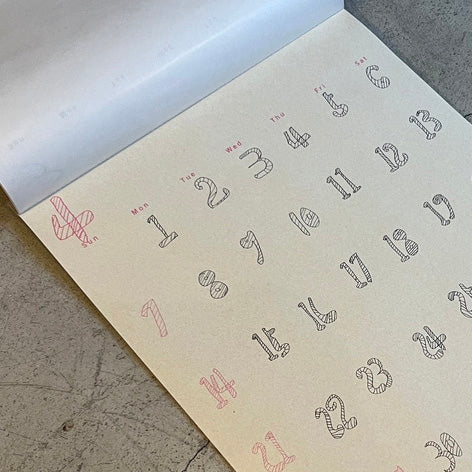 4
Sun Mon Tue Wed Thu Fri Sat
1 2 3 4 5 6
7 8 9 10 11 12 13
14 15 16 17 18 19
21 22 23 24
30